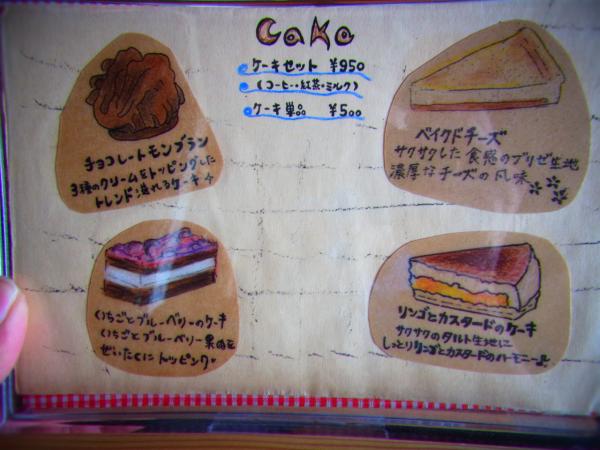 Cake
ケーキセット ¥950
(コーヒー・紅茶・ミルク)
ケーキ単品 ¥500
チョコレートモンブラン
3種のクリームをトッピングした
トレンド溢れるケーキ
ベイクドチーズ
サクサクした食感のブリゼ生地
濃厚なチーズの風味
いちごとブルーベリーのケーキ
いちごとブルーベリー果肉を
ぜいたくにトッピング
リンゴとカスタードのケーキ
サクサクのタルト生地に
しっとりリンゴとカスタードのハーモニー